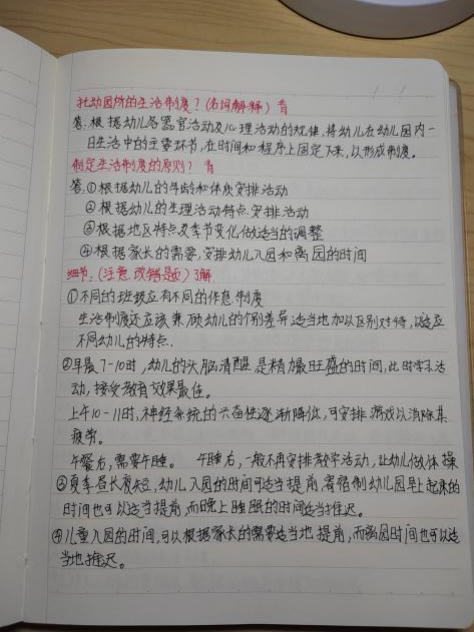 托幼园所的生活制度？(名词解释) 背
答：根据幼儿各器官活动及心理活动的规律，将幼儿在幼儿园内一
日生活中的主要环节，在时间和程序上固定下来，以形成制度。
制定生活制度的原则？背
答：①根据幼儿的年龄和体质安排活动
②根据幼儿的生理活动特点安排活动
③根据地区特点及季节变化做适当的调整
④根据家长的需要，安排幼儿入园和离园的时间
细节：(注意 改错题) 了解
①不同的班级应有不同的作息制度
生活制度还应该兼顾幼儿的个别差异适当地加以区别对待，以适应
不同幼儿的特点.
②早晨7-10时，幼儿的头脑清醒是精力最旺盛的时间，此时学习活
动，接受教育效果最佳。
上午10-11时，神经系统的兴奋性逐渐降低，可安排游戏以消除其
疲劳。
午餐后，需要午睡。 午睡后，一般不再安排教学活动，让幼儿做体操
③夏季昼长夜短，幼儿入园的时间可适当提前，寄宿制幼儿园早上起床的
时间也可以适当提前而晚上睡眠的时间适当推迟。
④儿童入园的时间，可以根据家长的需要适当地提前，而离园时间也可以适
当地推迟。